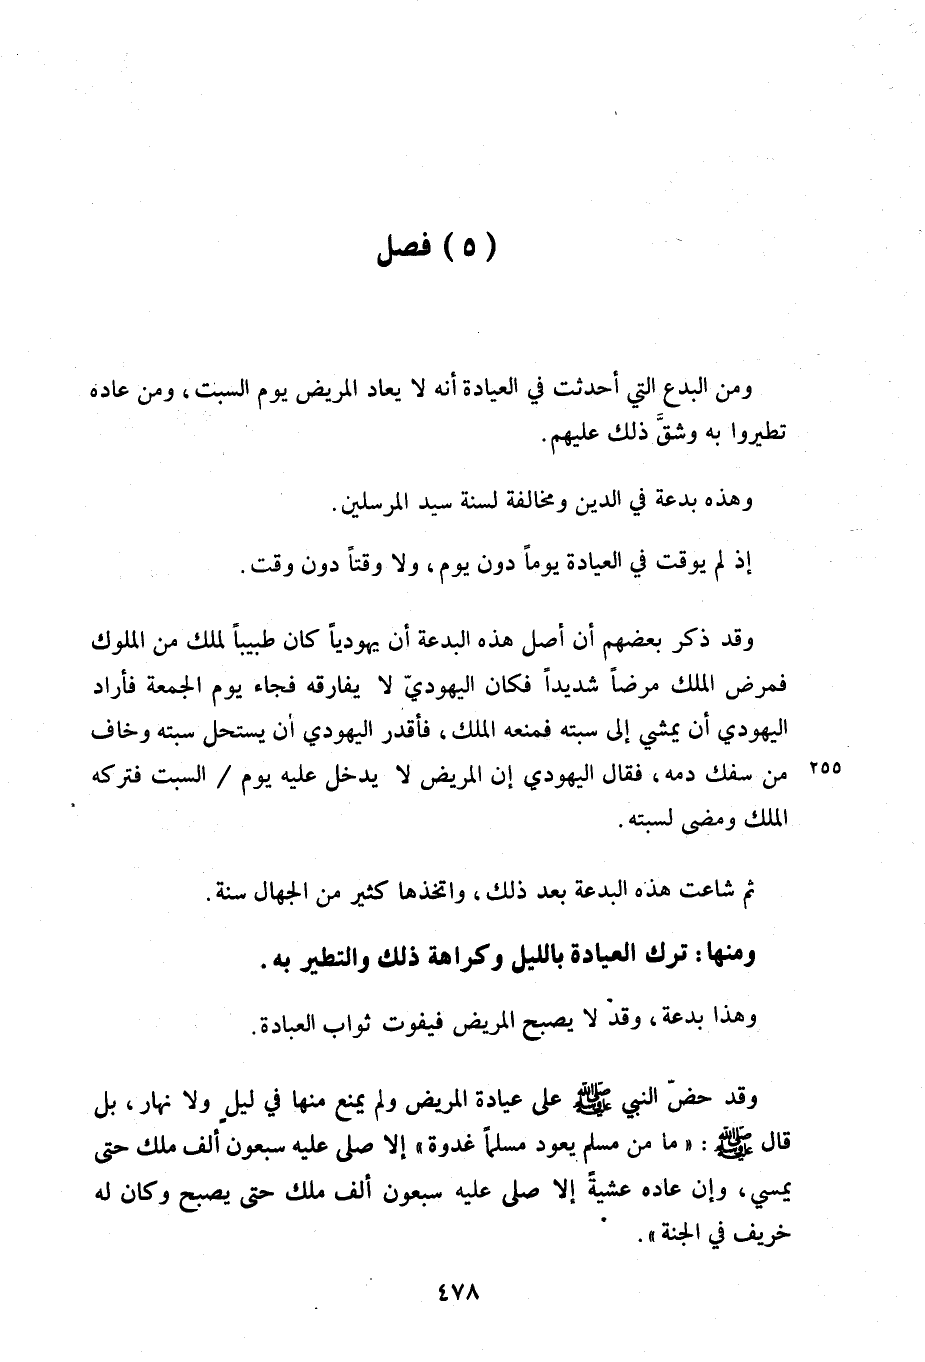 ( ٥ ) فصل
ومن البدع التي أحدثت في العيادة أنه لا يعاد المريض يوم السبت، ومن عاده
تطيروا به وشقَّ ذلك عليهم.
وهذه بدعة في الدين ومخالفة لسنة سيد المرسلين.
إذ لم يوقت في العيادة يوماً دون يوم، ولا وقتاً دون وقت.
وقد ذكر بعضهم أن أصل هذه البدعة أن يهودياً كان طبيباً لملك من الملوك
فمرض الملك مرضاً شديداً فكان اليهوديّ لا يفارقه فجاء يوم الجمعة فأراد
اليهودي أن يمشي إلى سبته فمنعه الملك، فأقدر اليهودي أن يستحل سبته وخاف
من سفك دمه، فقال اليهودي إن المريض لا يدخل عليه يوم / السبت فتركه ٢٥٥
الملك ومضى لسبته.
ثم شاعت هذه البدعة بعد ذلك، واتخذها كثير من الجهال سنة.
ومنها: ترك العيادة بالليل وكراهة ذلك والتطير به.
وهذا بدعة، وقد لا يصبح المريض فيفوت ثواب العبادة.
وقد حضّ النبي ﷺ على عيادة المريض ولم يمنع منها في ليل ولا نهار، بل
قال ﷺ : « ما من مسلم يعود مسلماً غدوة» إلا صلى عليه سبعون ألف ملك حتى
يمسي، وإن عاده عشيةً إلا صلى عليه سبعون ألف ملك حتى يصبح وكان له
خريف في الجنة».
٤٧٨